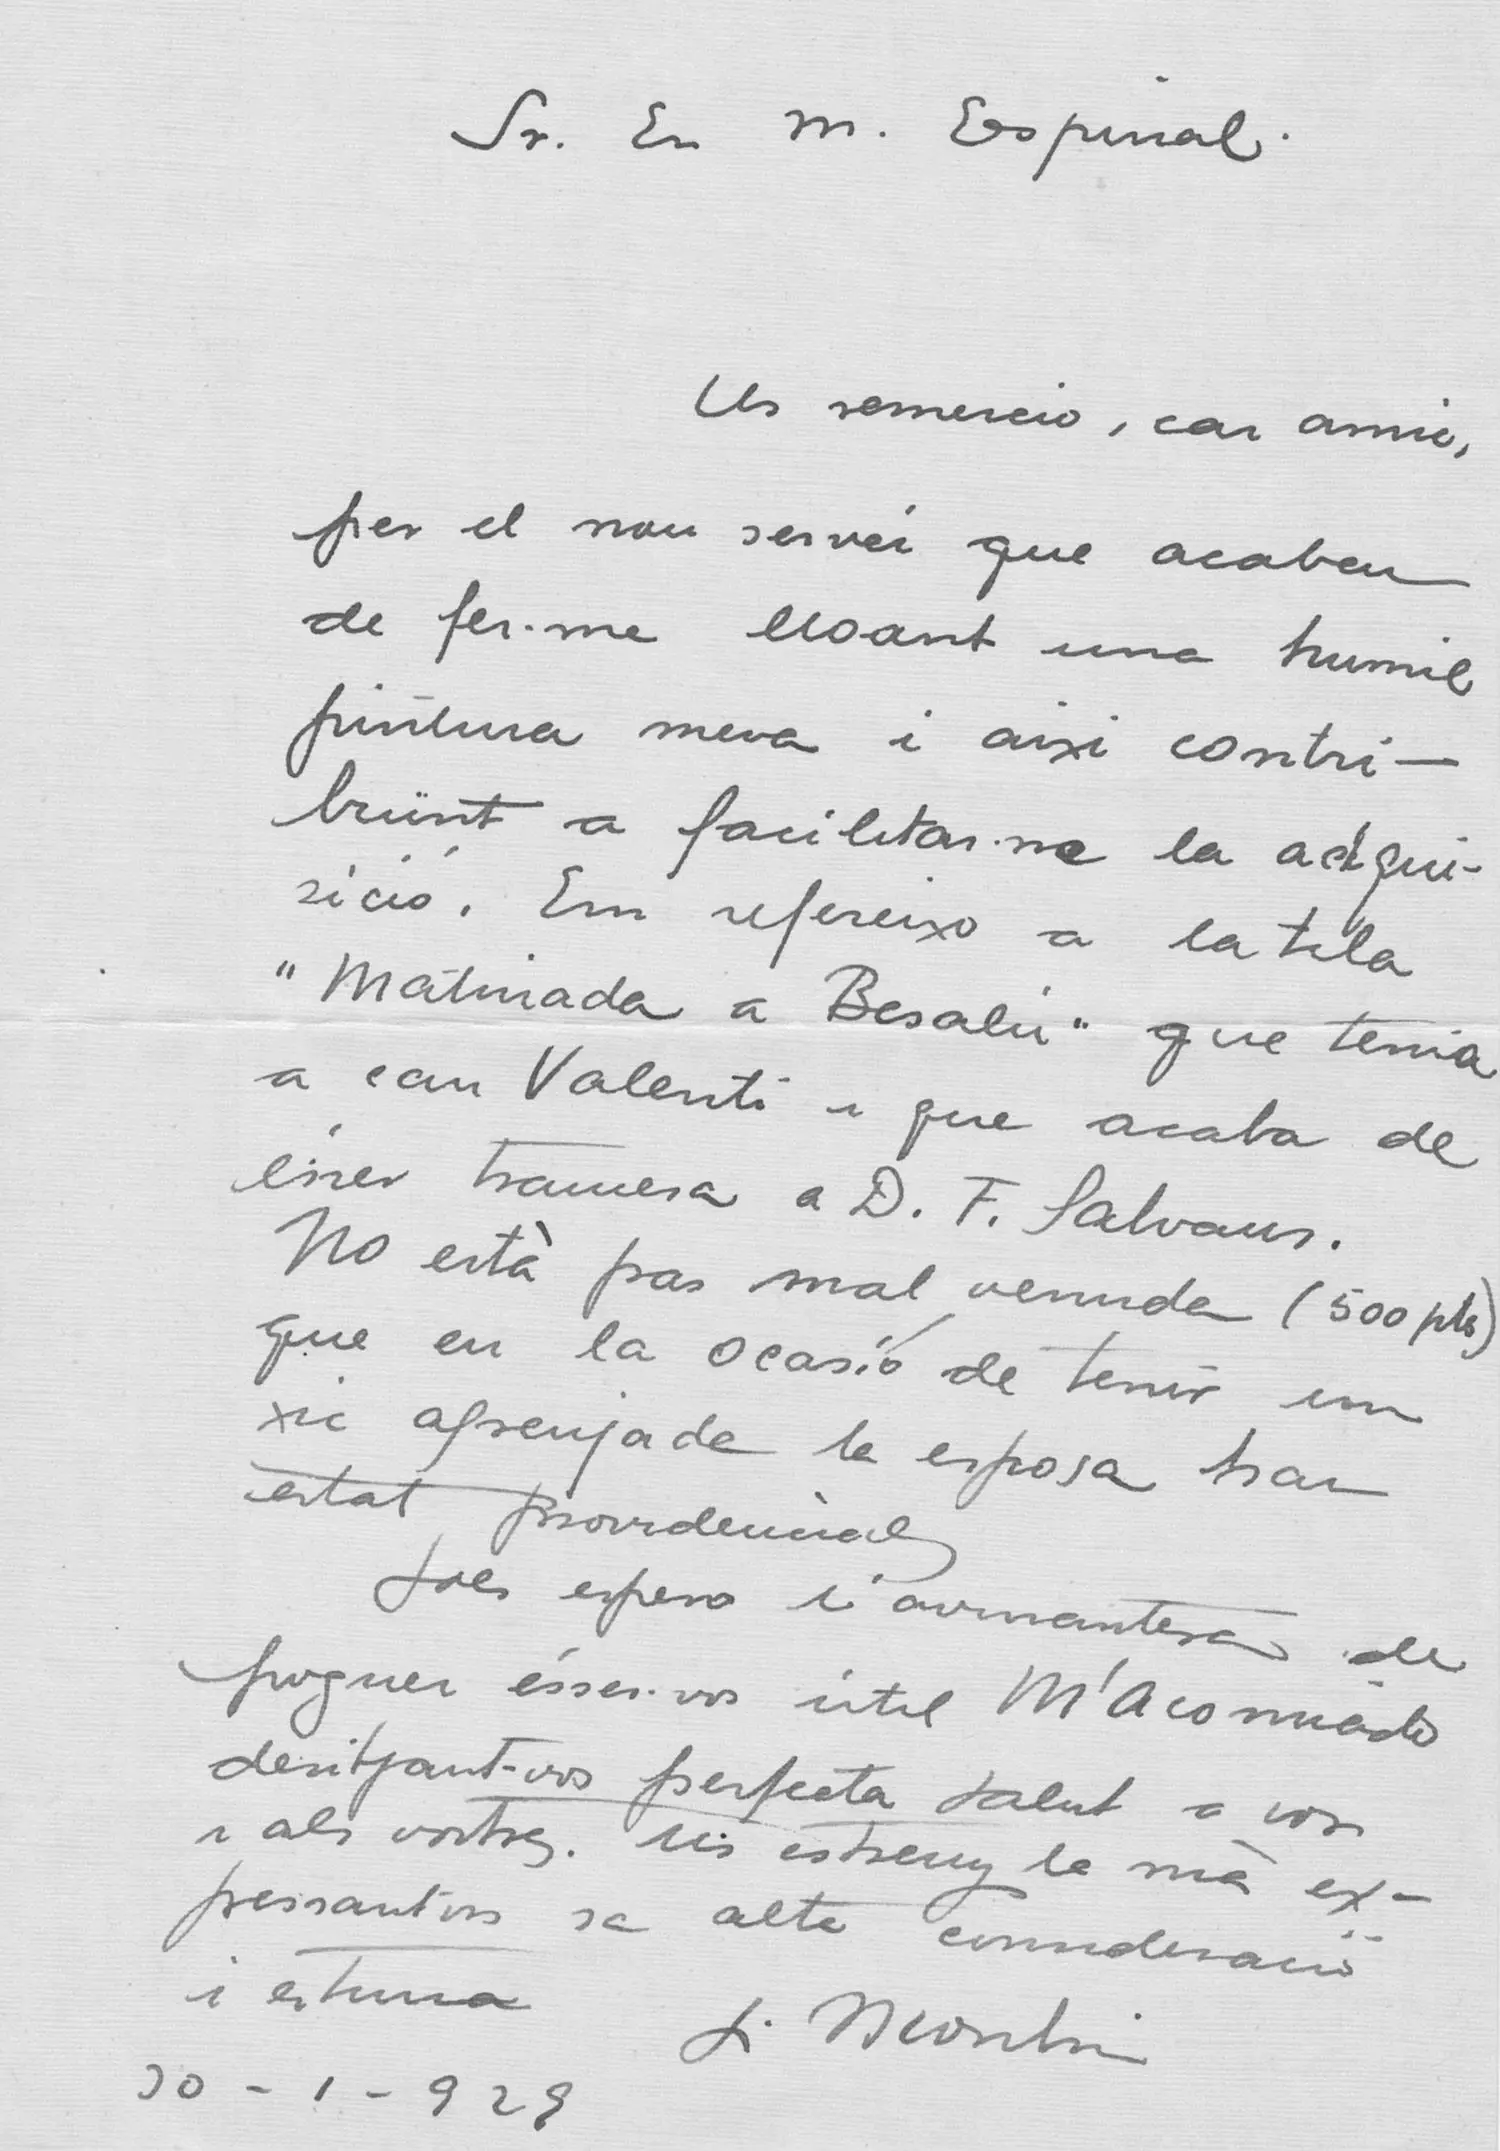 Sr. En M. Espinal.
Us remercio, car amic,
per el nou servei que acabeu
de fer-me lloant una humil
pintura meva i aixi contri-
buint a facilitar-ne la adqui-
sició. Em refereixo a la tela
"Matinada a Besalú" que tenia
a can Valenti i que acaba de
ésser tramesa a D. F. Salvans.
No està pas mal venuda (500 pts)
que en la ocasió de tenir un
xic apreujada la esposa hau
estat providencial
Sols espero l'avinantesa de
poguer ésser-vos útil M'Acomiado
desitjant-vos perfecta salut a vos
i als vostres. Us estreny la mà ex-
pressantvos sa alta consideració
i estima
30-1-929